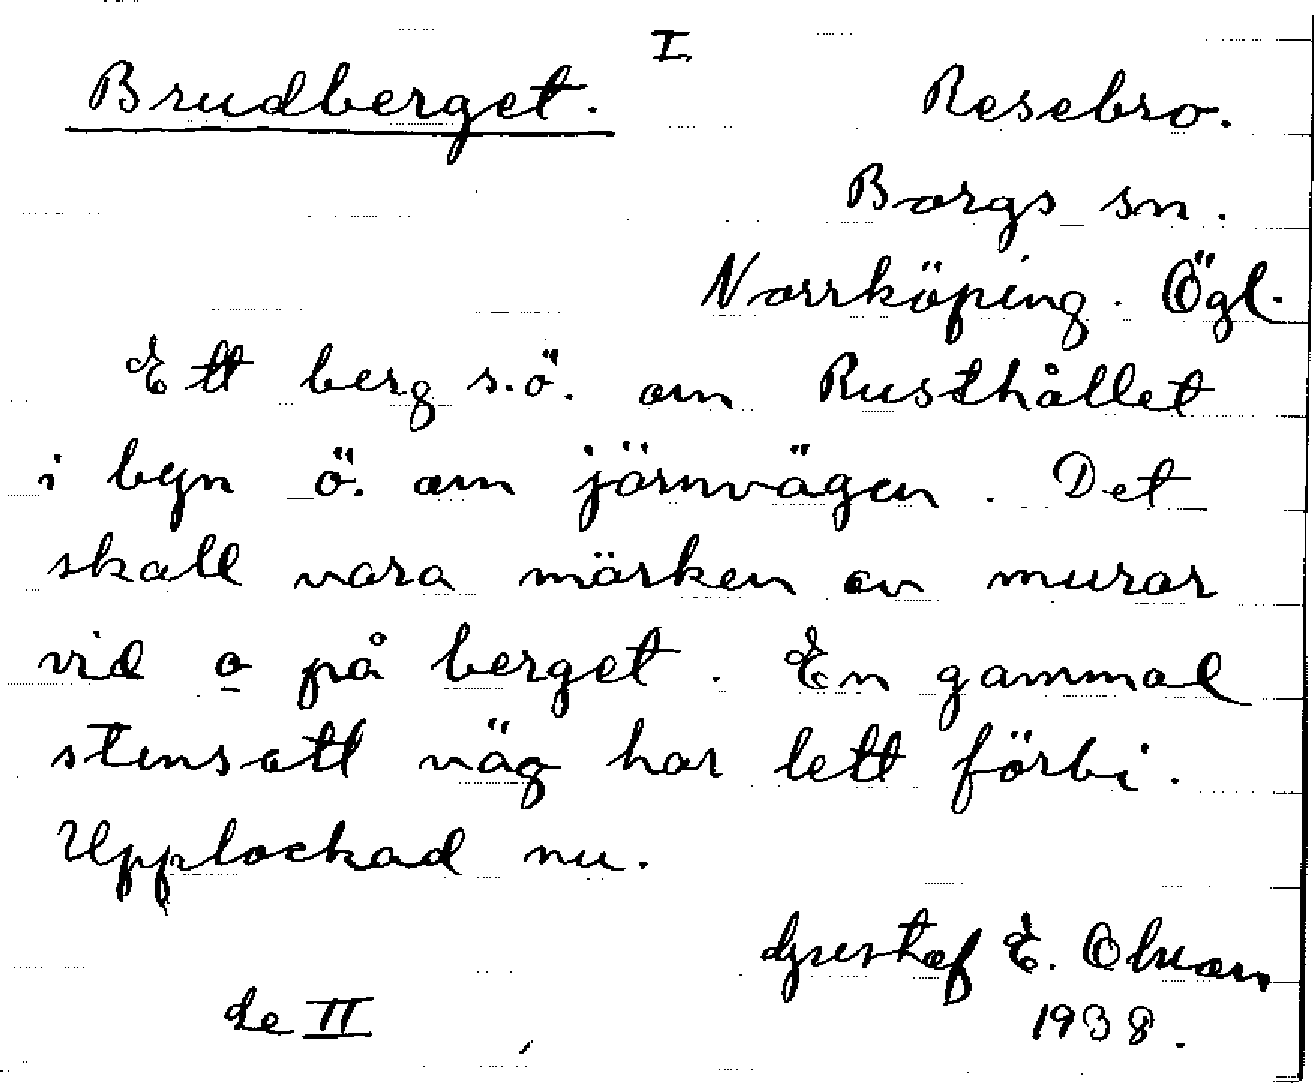 I.
Brudberget. Resebro.
Borgs sn.
Norrköping. Ögl.
Ett berg s.ö. om Rusthållet
i byn ö. om järnvägen. Det
skall vara märken av murar
vid o på berget. En gammal
stensatt väg har lett förbi.
Upplockad nu.
Gustaf E. Olsson
1938.
Se II